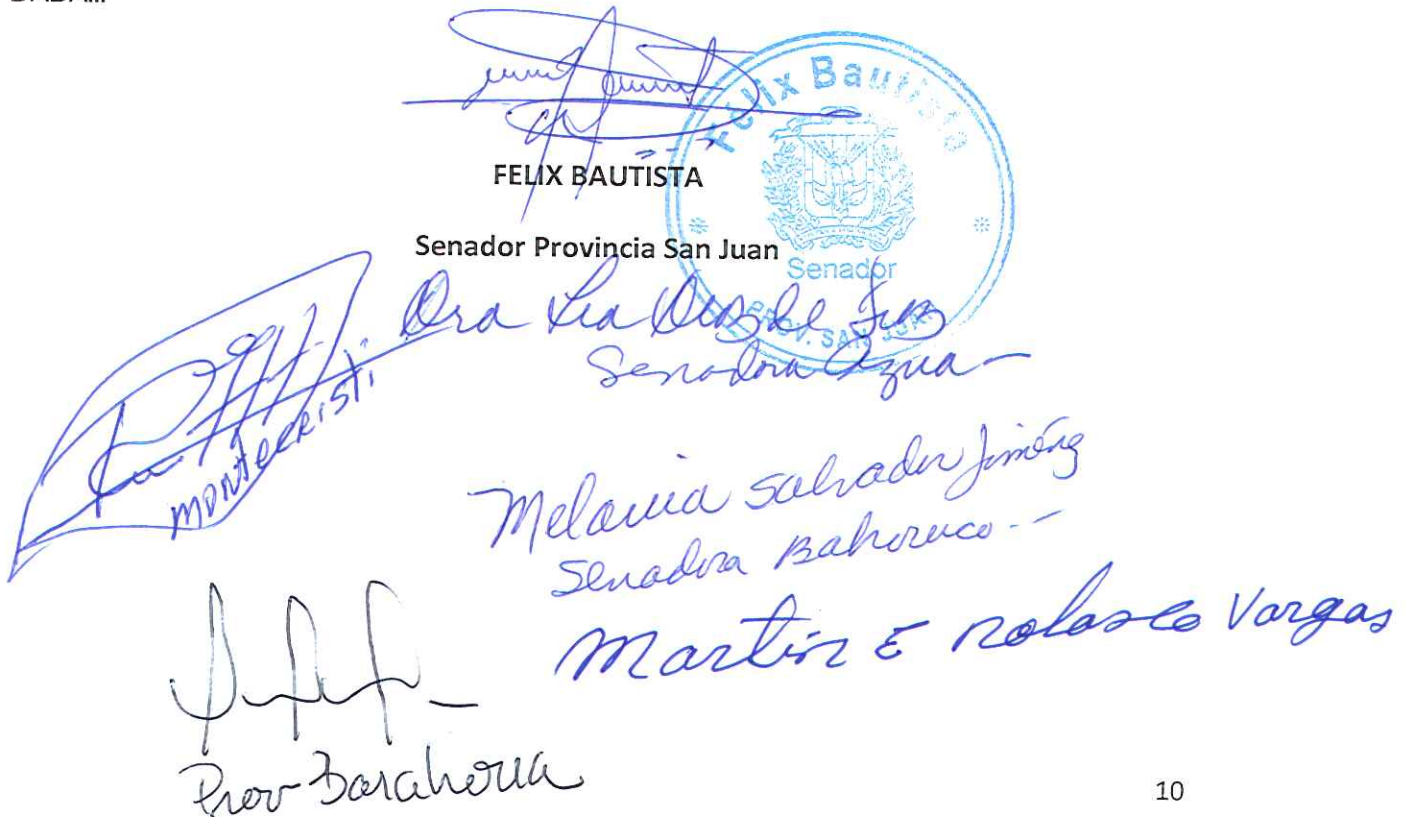 DADA...
FELIX BAUTISTA
Senador Provincia San Juan
Félix Bautista
Senador
PROV. SAN JUAN
Dra Lia Diaz de
Senadora Azua
MONTECRISTI
Melania Salvador Jiménez
Senadora Bahoruco
Martin E Nolasco Vargas
Prov Barahona
10